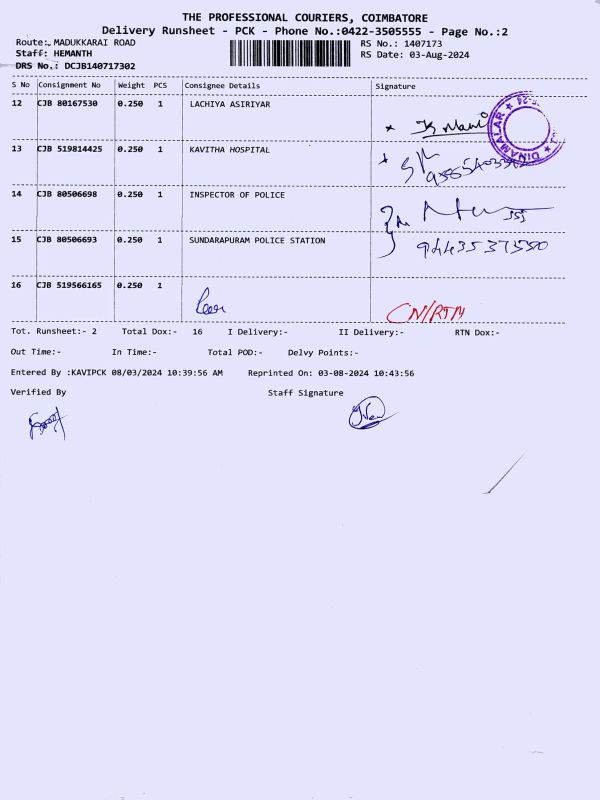 THE PROFESSIONAL COURIERS, COIMBATORE
Delivery Runsheet - PCK - Phone No.:0422-3505555 - Page No.:2
Route:. MADUKKARAI ROAD RS No.: 1407173
Staff: HEMANTH RS Date: 03-Aug-2024
DRS No.: DCJB140717302
S No Consignment No Weight PCS Consignee Details Signature
12 CJB 80167530 0.250 1 LACHIYA ASIRIYAR
DINAMALAR
13 CJB 519814425 0.250 1 KAVITHA HOSPITAL
14 CJB 80506698 0.250 1 INSPECTOR OF POLICE
15 CJB 80506693 0.250 1 SUNDARAPURAM POLICE STATION
16 CJB 519566165 0.250 1
CN/RTM
Tot. Runsheet:- 2 Total Dox:- 16 I Delivery:- II Delivery:- RTN Dox:-
Out Time:- In Time:- Total POD:- Delvy Points:-
Entered By :KAVIPCK 08/03/2024 10:39:56 AM Reprinted On: 03-08-2024 10:43:56
Verified By Staff Signature